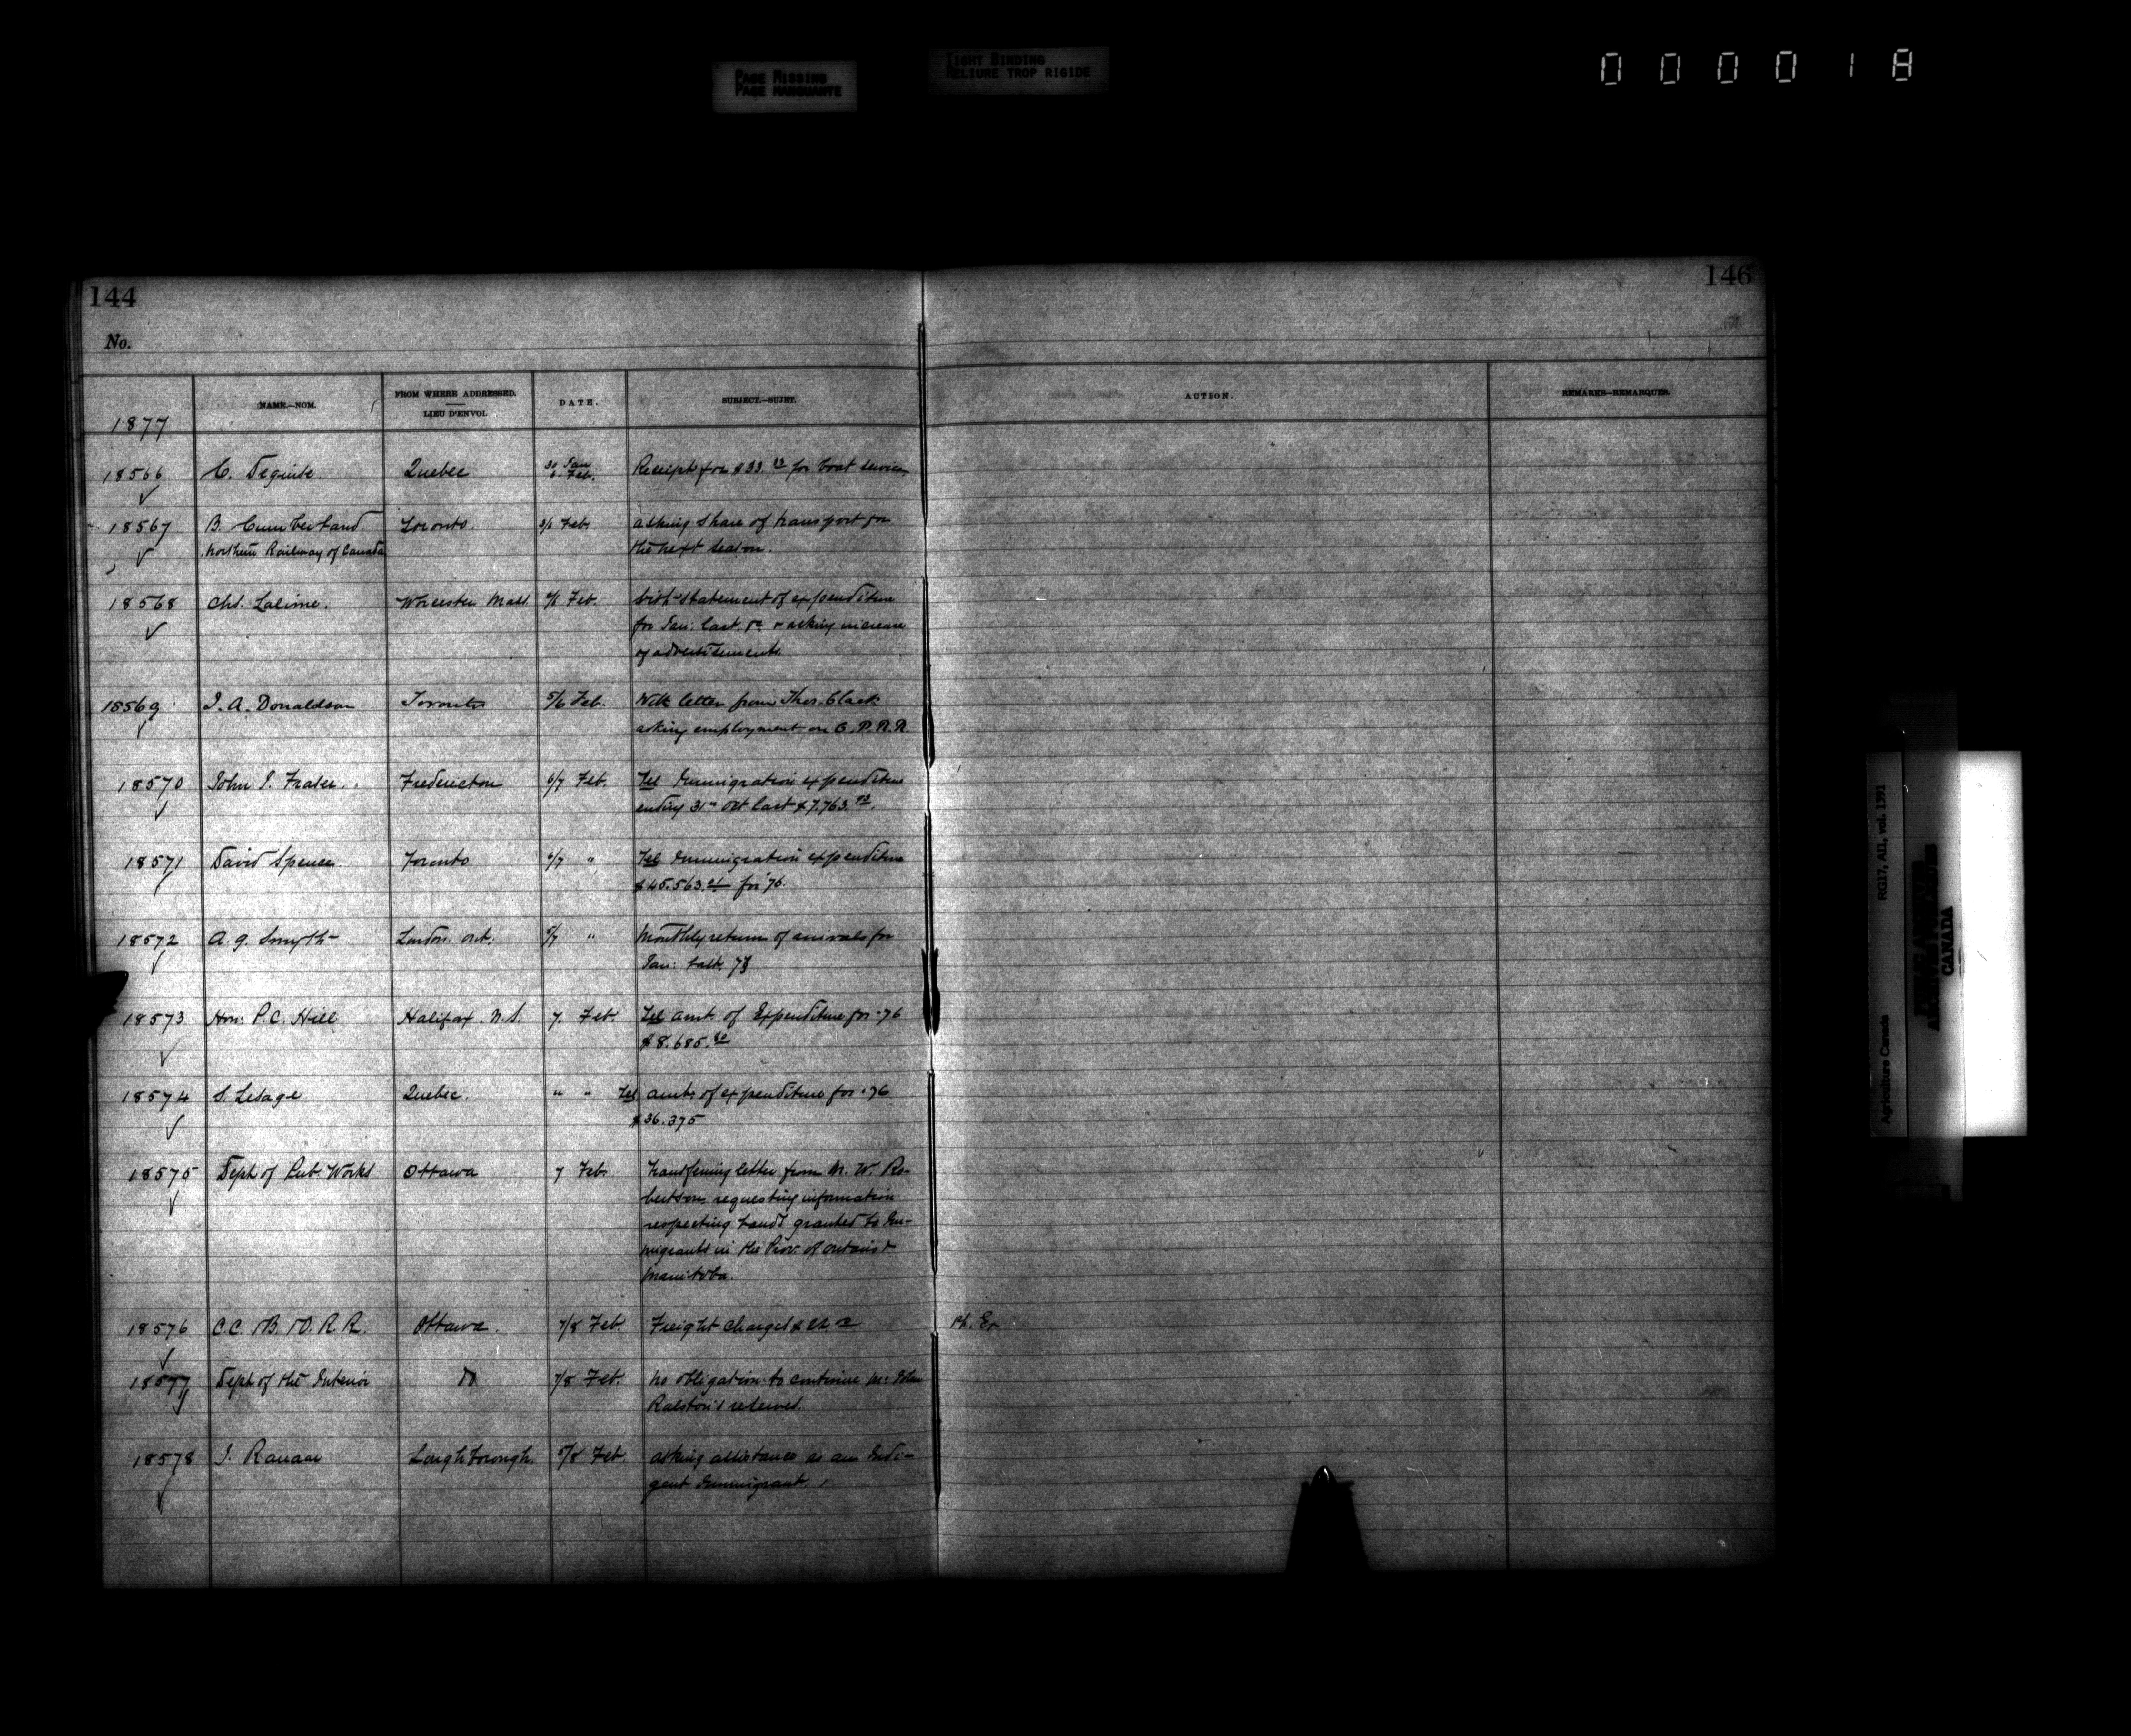 PAGE MISSING
PAGE MANQUANTE
TIGHT BINDING
RELIURE TROP RIGIDE
000018
144
146
No.
NAME.—NOM.
FROM WHERE ADDRESSED.
LIEU D'ENVOI.
DATE.
SUBJECT.—SUJET.
ACTION.
REMARKS—REMARQUES.
1877
18566 C. Deguise. Quebec 30 Jan 6. Feb. Receipt for $33. for boat services
18567 B. Cumberland Toronto. Feb. asking share of transport for
Northern Railway of Canada the next season.
18568 Chs. Lalime. Worcester Mass Feb. with statement of expenditure
for Jan: last. & asking increase
of advertisements.
18569 J. A. Donaldson Toronto 5/6 Feb. With letter from Thos. Clark
asking employment on C. P. R. R
18570 John J. Fraser. Fredericton 6/7 Feb. Tel Immigration expenditure
ending 31st Oct last $7.763.
18571 David Spence. Toronto 6/7 " Tel Immigration expenditure
$45.563. for '76.
18572 A. G. Smyth London Ont. 5/7 " Monthly return of arrivals for
Jan: last.
18573 Hon. P. C. Hill Halifax. N.S. 7. Feb. Tel amt. of Expenditure for '76
$8.685.80
18574 S. Lesage Quebec. " " Tel amt of expenditure for '76
$36.375
18575 Dept of Pub. Works Ottawa 7 Feb. transferring letter from W. Ro-
bertson requesting information
respecting lands granted to Im-
migrants in the Prov. of Ontario &
Manitoba.
18576 C.C. & B. & O. R. R. Ottawa. 7/8 Feb. Freight charges $ Ph. Er
18577 Dept of the Interior Do 7/8 Feb. no obligation to continue Mr John
Ralston's reserves.
18578 J. Ranaan Loughborough 5/8 Feb asking assistance as an Indi-
gent Immigrant.
RG17, AII, vol. 1391
Agriculture Canada
PUBLIC ARCHIVES
ARCHIVES PUBLIQUES
CANADA